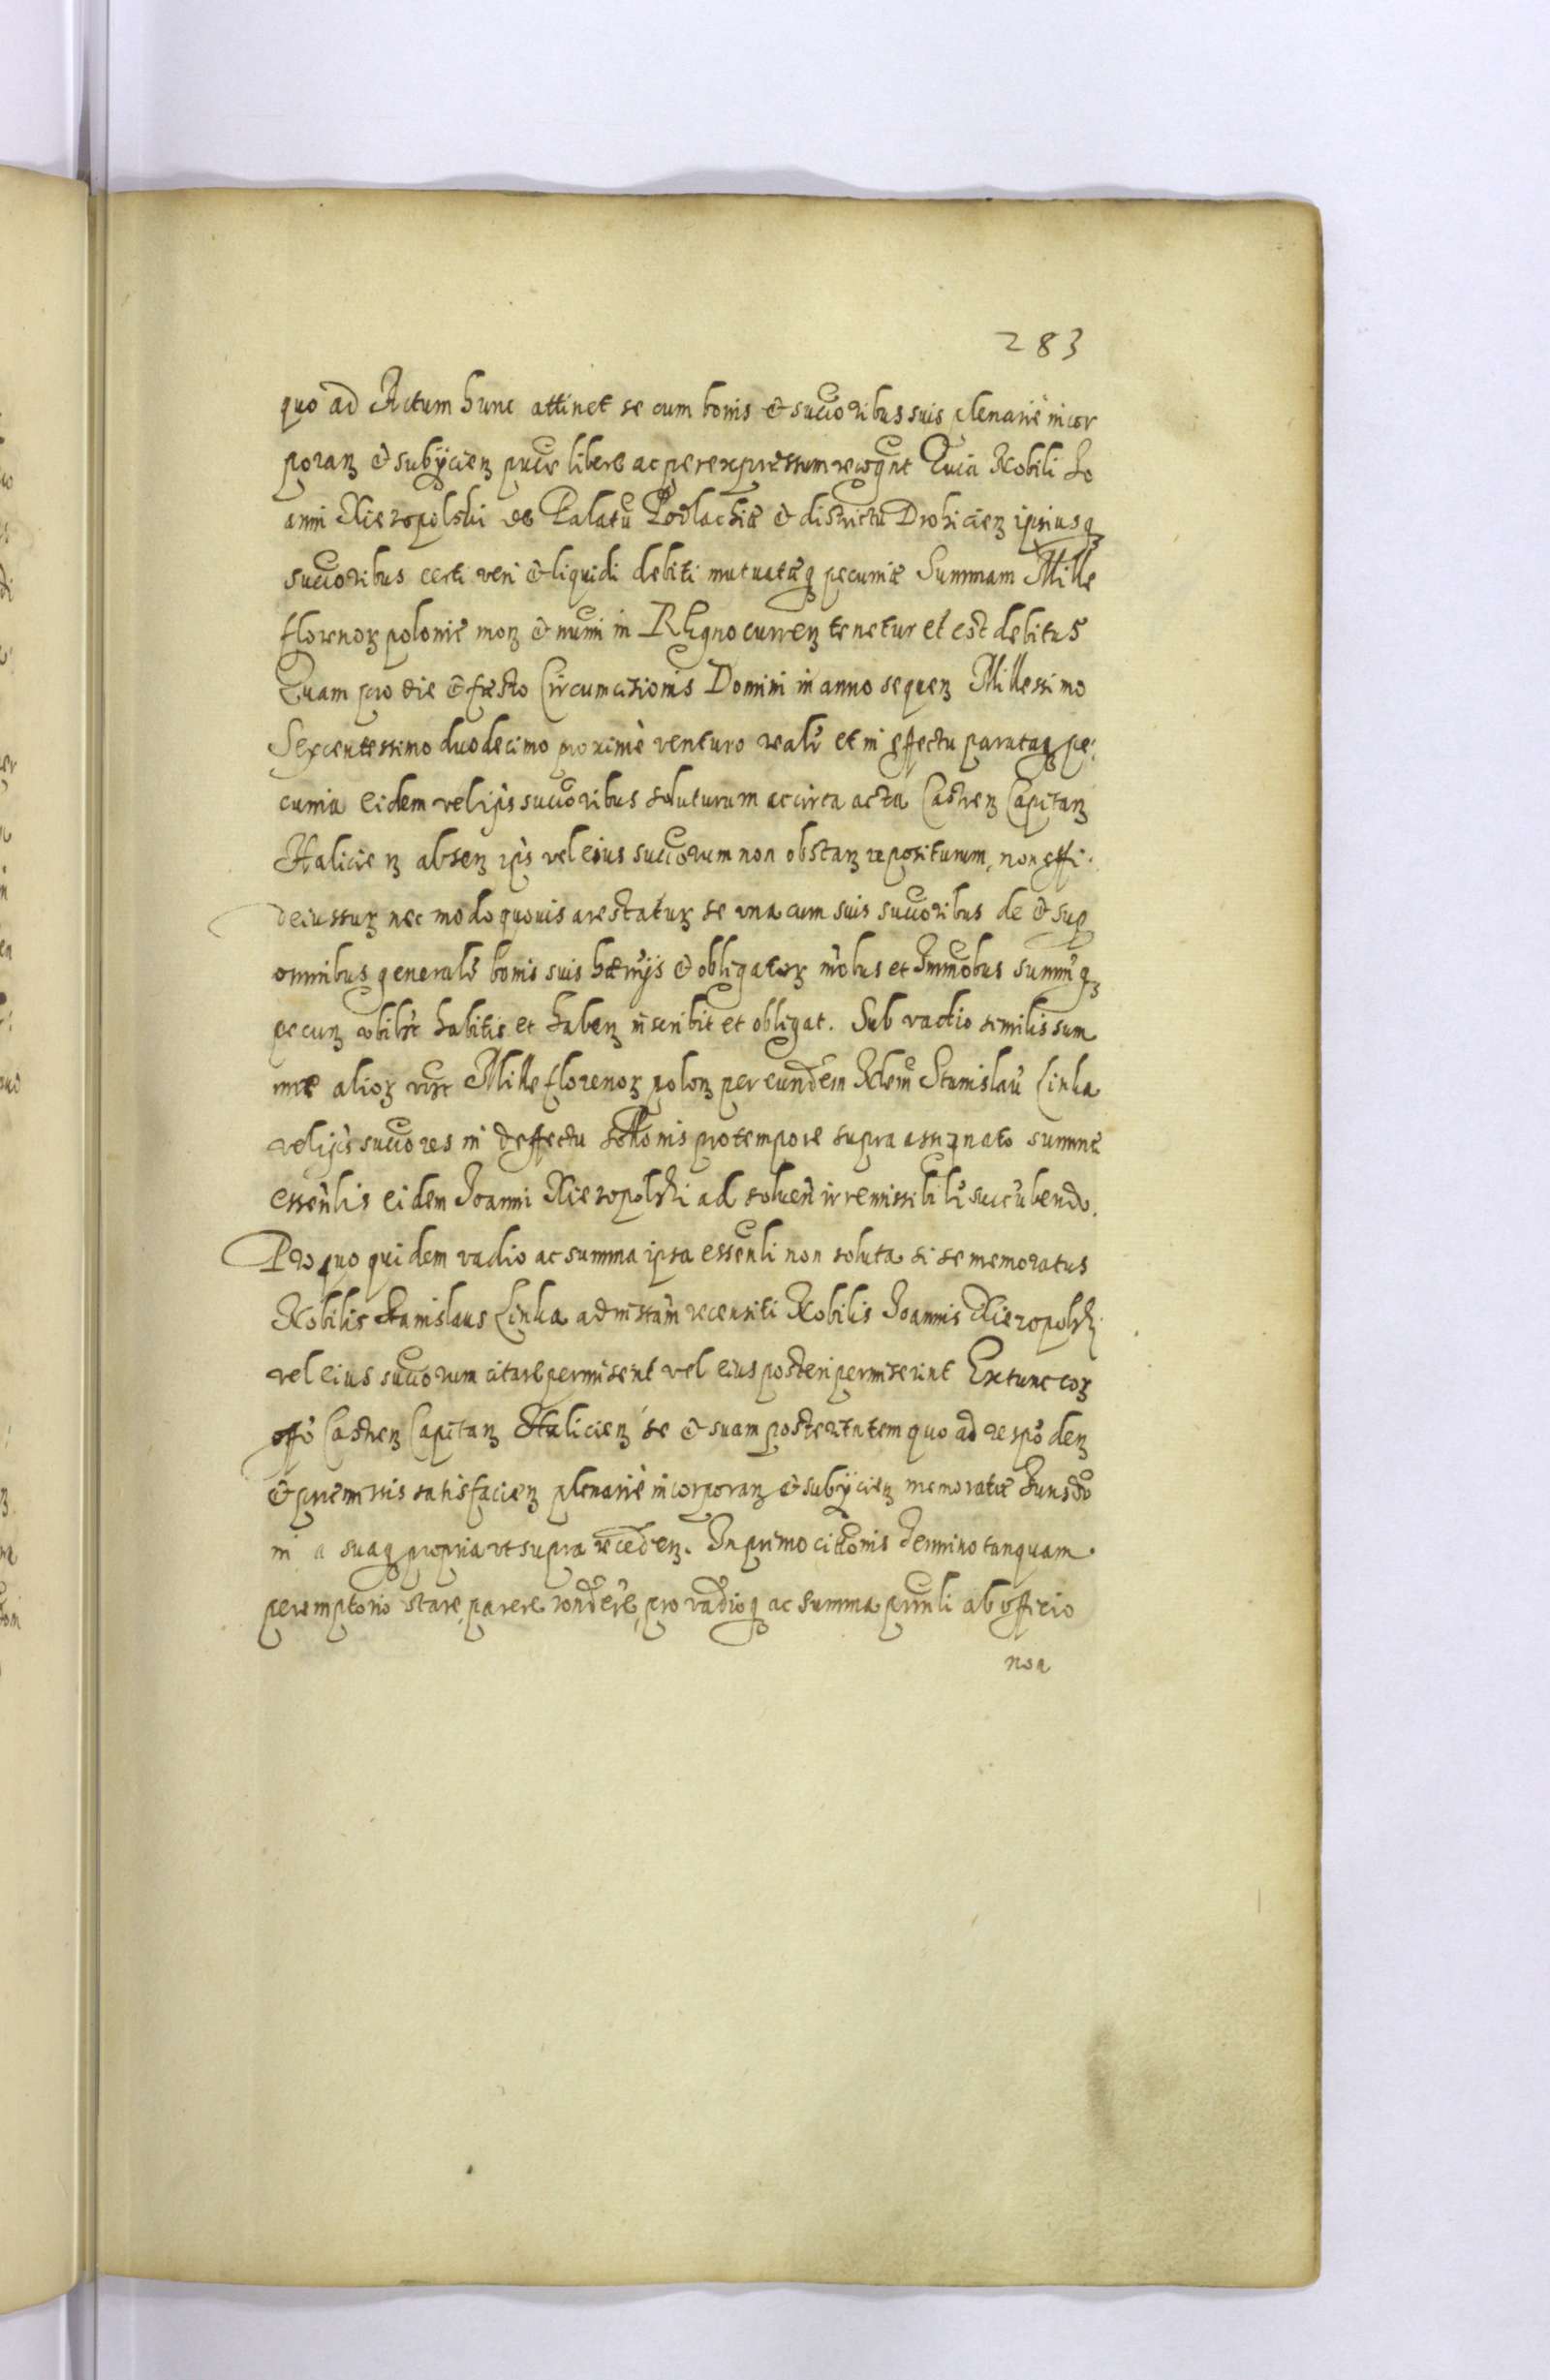 283
quo ad Actum hunc attinet se cum bonis et succoribus suis plenarie incor
poranz et subÿcienz puce libere ac per expressum recognt Quia Nobili Jo
anni Xiezopolski de Palatu Podlachiæ et districtu Drohicienz ipsiusq
succoribus certi veri et liquidi debiti mutuatæq pecuniæ Summam Mille
florenorz poloniê monz et numi in Regno currenz tenetur et est debitus
Quam pro die et fæsto Circumcisionis Domini in anno sequenz Millessimo
Sexcentessimo duodecimo proximè venturo realr et in effectu parataq pe:
cunia eidem vel ipsis succoribus soluturum ac circa acta Castrenz Capitanz
Halicienz absenz ipis vel eius succorum non obstanz repositurum, non effi
deiussurz nec modo quovis arestaturz se una cum suis succoribus de et sup
omnibus generalr bonis suis hæreijs et obligatorz mobus et Immobus summisq
pecunz vbilbt habitis et habenz inscribit et obligat. Sub vadio similis sum
mæ aliorz vizt Mille florenorz polonz per eundem Nlem Stanislau Linka
vel ipis succores in deffectu solonis pro tempore supra assignato summæ
essenlis eidem Joanni Xiezopolski ad soluen irremissibilr succubendo.
Pro quo quidem vadio ac summa ipsa essenli non soluta si se memoratus
Nobilis Stanislaus Linka ad instam recensiti Nobilis Joannis Xiezopolski
vel eius succorum citare permiserit vel eius posteri permiserint Extunc corz
offo Castrenz Capitanz Halicienz se et suam posteritatem quo ad respodenz
et præmissis satisfacienz plenariè incorporanz et subÿcienz memoratæ Junsdo
ni a suaq propria ut supra recedenz. In primo citonis termino tanquam
peremptorio stare, parere rondere, pro vadioq ac summa prinli ab officio
non